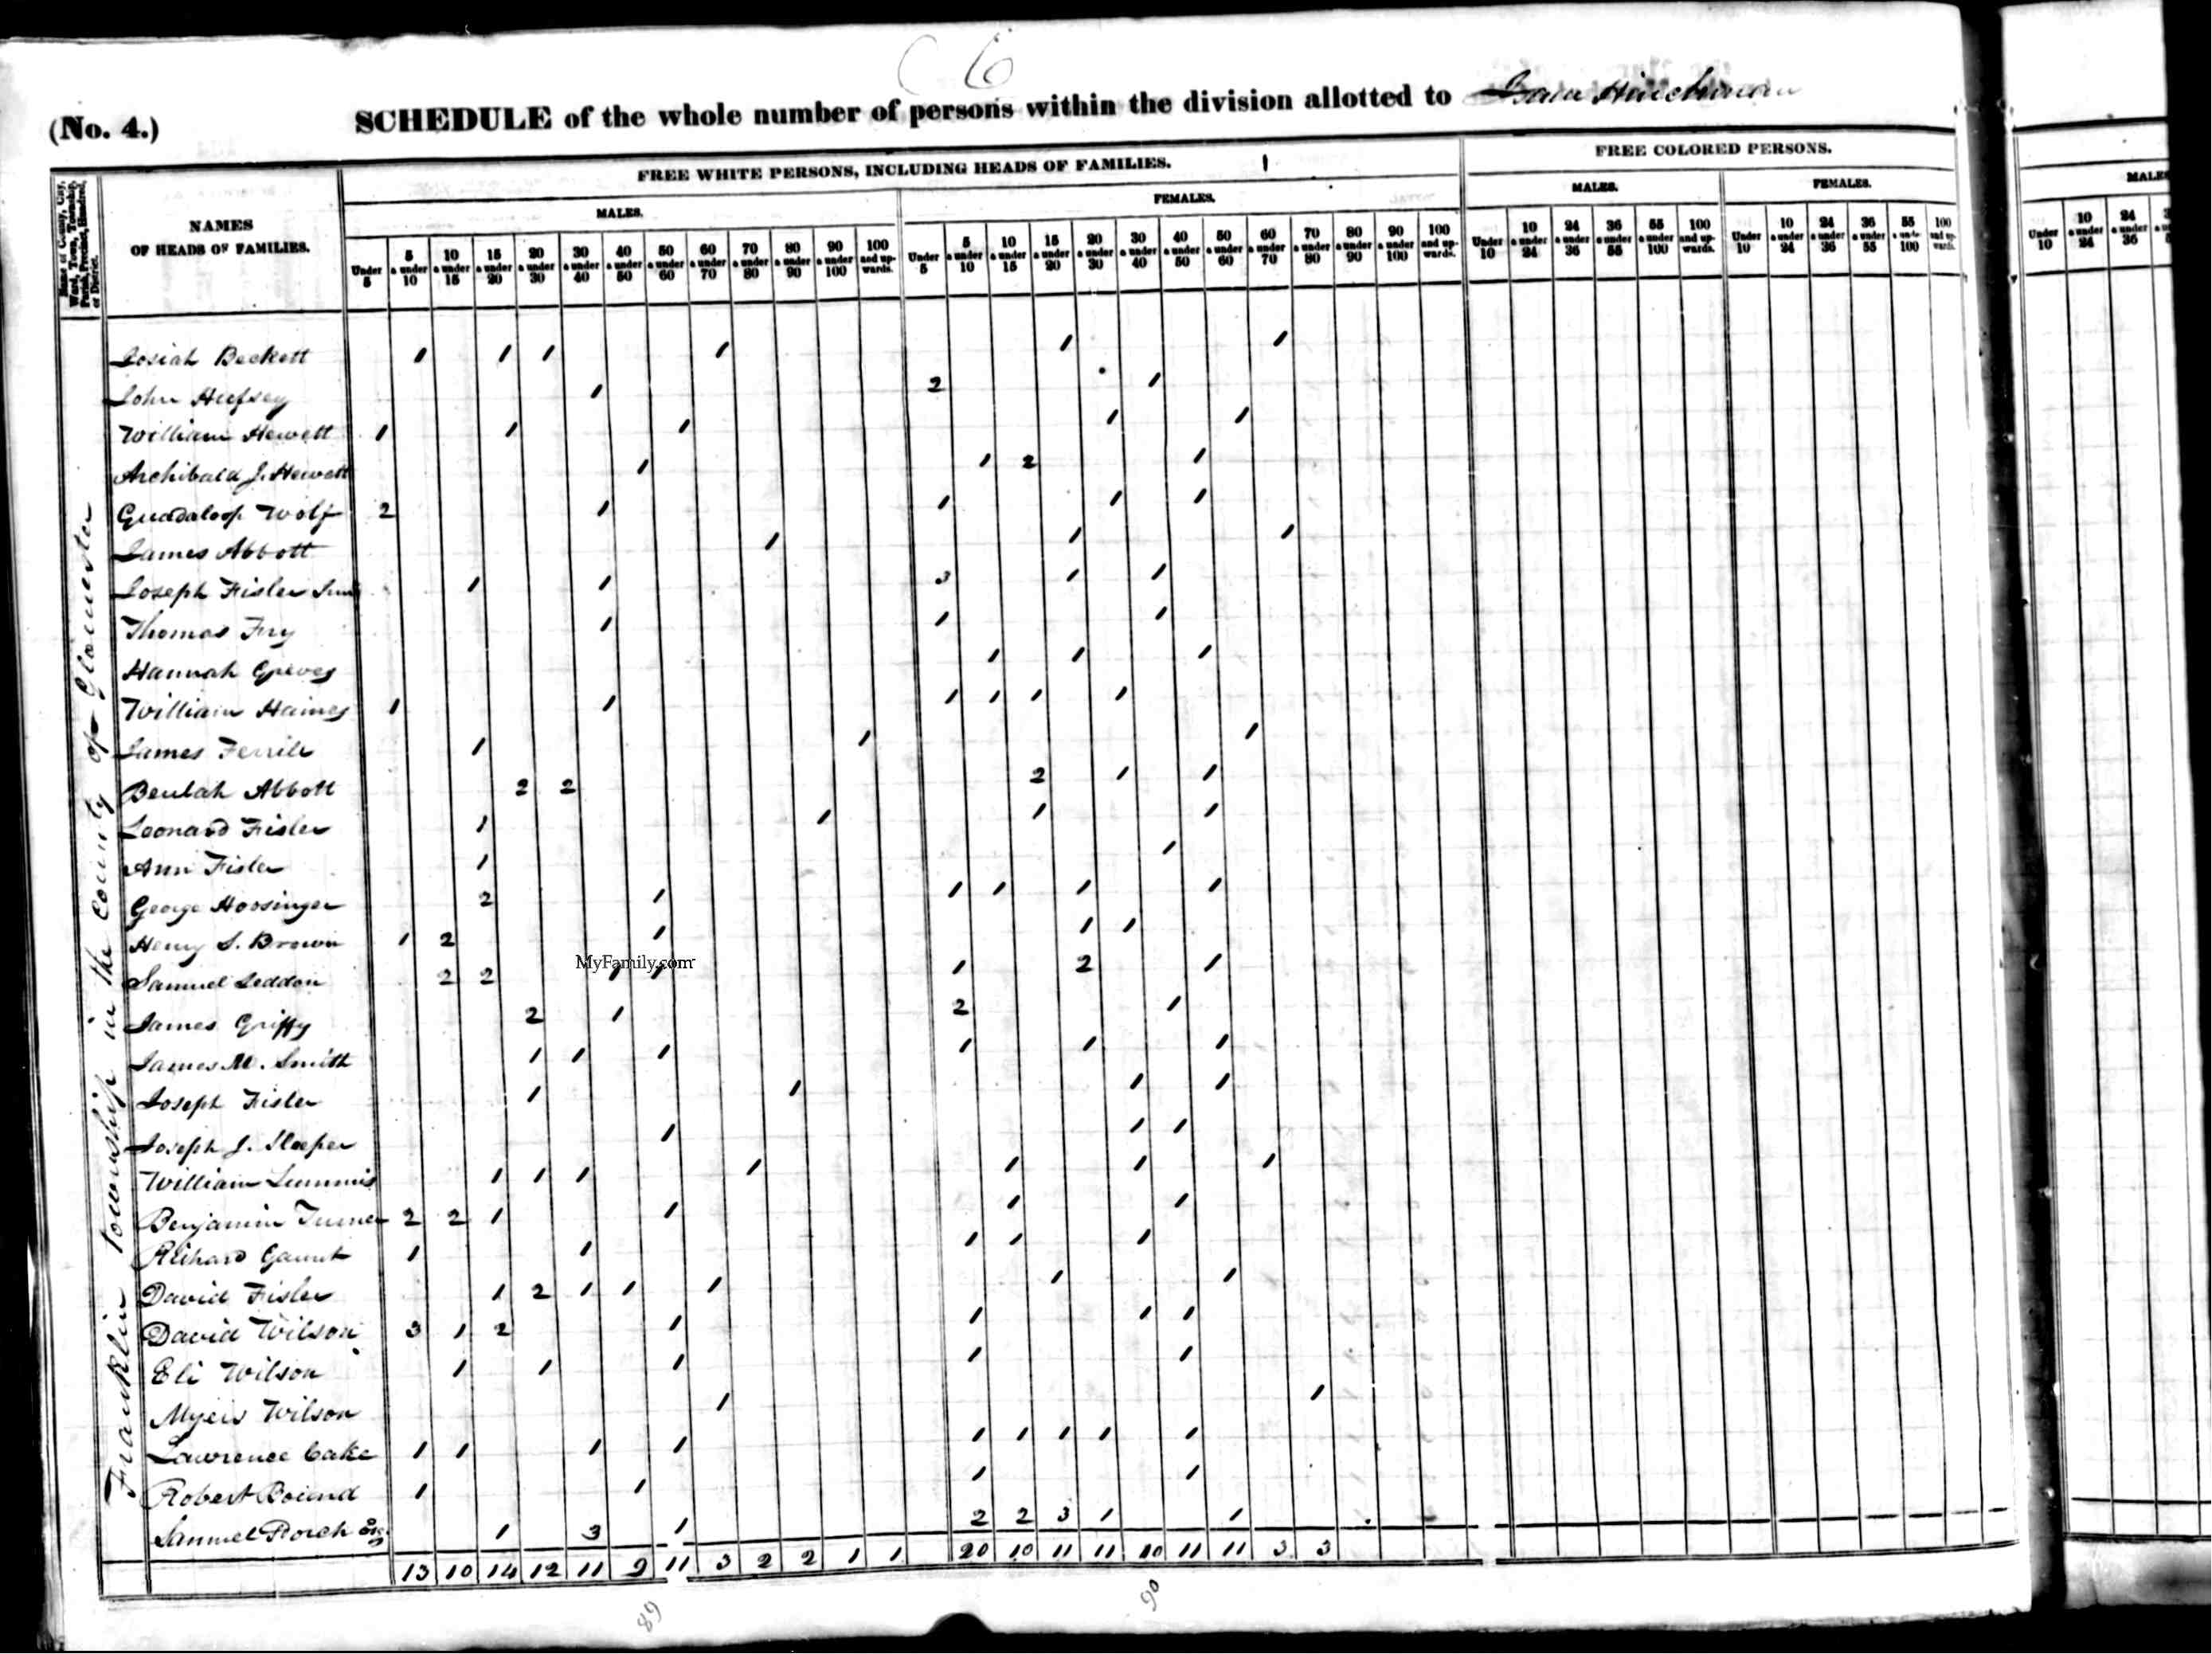 6
(No. 4.) SCHEDULE of the whole number of persons within the division allotted to Hinchman
Name of County, City, Ward, Town, Township, Parish, Precinct, Hundred, or District.
NAMES OF HEADS OF FAMILIES.
FREE WHITE PERSONS, INCLUDING HEADS OF FAMILIES.
FREE COLORED PERSONS.
MALES. FEMALES. MALES. FEMALES. MALES
Under 5 | 5 & under 10 | 10 & under 15 | 15 & under 20 | 20 & under 30 | 30 & under 40 | 40 & under 50 | 50 & under 60 | 60 & under 70 | 70 & under 80 | 80 & under 90 | 90 & under 100 | 100 and upwards. | Under 5 | 5 & under 10 | 10 & under 15 | 15 & under 20 | 20 & under 30 | 30 & under 40 | 40 & under 50 | 50 & under 60 | 60 & under 70 | 70 & under 80 | 80 & under 90 | 90 & under 100 | 100 and upwards. | Under 10 | 10 & under 24 | 24 & under 36 | 36 & under 55 | 55 & under 100 | 100 and upwards. | Under 10 | 10 & under 24 | 24 & under 36 | 36 & under 55 | 55 & under 100 | 100 and upwards. | Under 10 | 10 & under 24 | 24 & under 36
Franklin township in the county of Gloucester
Josiah Beckett 1 1 1 1 1 1
John 1 2 1
William Hewett 1 1 1 1 1
Archibald J. Hewett 1 1 2 1
Guadaloop Wolf 2 1 1 1 1
James Abbott 1 1 1
Joseph Fisler 1 1 3 1 1
Thomas Fry 1 1 1
Hannah 1 1 1
William Haines 1 1 1 1 1 1
James Ferrile 1 1 1
Beulah Abbott 2 2 2 1 1
Leonard Fisler 1 1 1 1
Ann Fisler 1 1
George Hoosinger 2 1 1 1 1 1
Henry S. Brown 1 2 1 1 1
Samuel Leddon 2 2 1 1 1 2 1
MyFamily.com
James Griffy 2 1 2 1
James M. Smith 1 1 1 1 1 1
Joseph Fisler 1 1 1 1
Joseph J. Sleeper 1 1 1
William Lummis 1 1 1 1 1 1 1
Benjamin Turner 2 2 1 1 1 1
Richard Gaunt 1 1 1 1 1
David Fisler 1 2 1 1 1 1 1
David Wilson 3 1 2 1 1 1 1
Eli Wilson 1 1 1 1 1
Myers Wilson 1 1
Lawrence Cake 1 1 1 1 1 1 1 1 1
Robert Bound 1 1 1 1
Samuel Porch 1 3 1 2 2 3 1 1
13 10 14 12 11 9 11 3 2 2 1 1 20 10 11 11 10 11 11 3 3
89 90